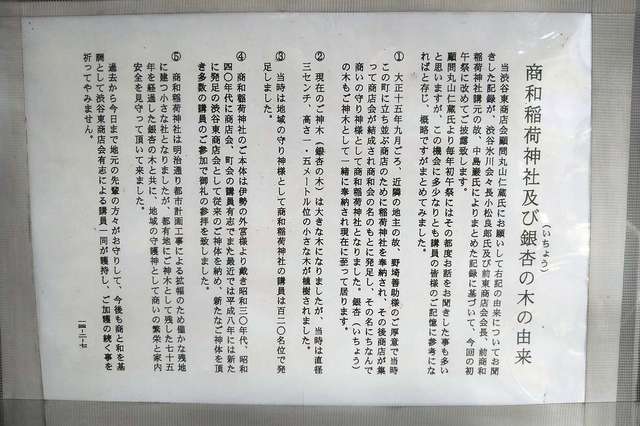 商和稲荷神社及び銀杏の木の由来
(いちょう)
当渋谷東商店会顧問丸山仁蔵氏にお願いして右記の由来についてお聞
きした記録が、渋谷氷川会々長小松良郎氏及び前東商店会会長、前商和
稲荷神社講元の故、中島巌氏によりまとめた記録に基づいて、今回の初
午祭に改めてご披露致します。
顧問丸山仁蔵氏より毎年初午祭にはその都度お話をお聞きした事も多い
と思いますが、この機会に多少なりとも講員の皆様のご記憶に参考にな
ればと存じ、概略ですがまとめてみました。
① 大正十五年九月ごろ、近隣の地主の故、野埼善助様のご厚意で当時
この町に立ち並ぶ商店のために稲荷神社を奉納され、その後商店が集
って商店会が結成され商和会の名のもとに発足し、その名にちなんで
商いの守り神様として商和稲荷神社となりました。銀杏(いちょう)
の木もご神木として一緒に奉納され現在に至って居ります。
② 現在のご神木(銀杏の木)は大きな木になりましたが、当時は直径
三センチ、高さ一・五メートル位の小さな木が植樹されました。
③ 当時は地域の守り神様として商和稲荷神社の講員は百二〇名位で発
足しました。
④ 商和稲荷神社のご本体は伊勢の外宮様より戴き昭和三〇年代、昭和
四〇年代に商店会、町会の講員有志でまた最近では平成八年には新た
に発足の渋谷東商店会として従来のご神体を納め、新たなご神体を頂
き多数の講員のご参加で御礼の参拝を致しました。
⑤ 商和稲荷神社は明治通り都市計画工事による拡幅のため僅かな残地
に建つ小さな社となりましたが、都有地にご神木として残した七十五
年を経過した銀杏の木と共に、地域の守護神として商いの繁栄と家内
安全を見守って頂いて来ました。
過去から今日まで地元の先輩の方々がお守りして、今後も商と和を基
調として渋谷東商店会有志による講員一同が護持し、ご加護の続く事を
祈ってやみません。
一四・二・七